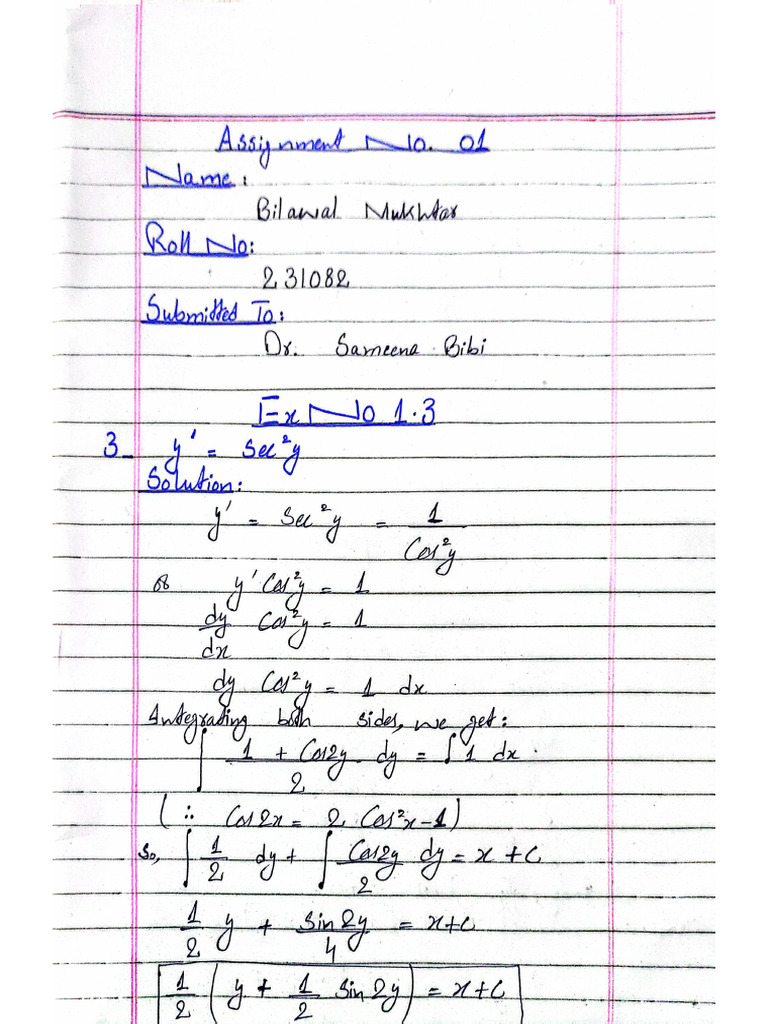 Assignment No. 01
Name:
Bilawal Mukhtar
Roll No:
231082
Submitted To:
Dr. Sameena Bibi
Ex No 1.3
3- y' = Sec²y
Solution:
y' = Sec²y = 1/Cos²y
or y' Cos²y = 1
dy/dx Cos²y = 1
dy Cos²y = 1 dx
Integrating both sides, we get:
∫ (1 + Cos2y)/2 dy = ∫ 1 dx.
(∵ Cos2x = 2 Cos²x-1)
So, ∫ 1/2 dy + ∫ Cos2y/2 dy = x + c
1/2 y + Sin2y/4 = x+c
1/2 (y + 1/2 Sin2y) = x+c